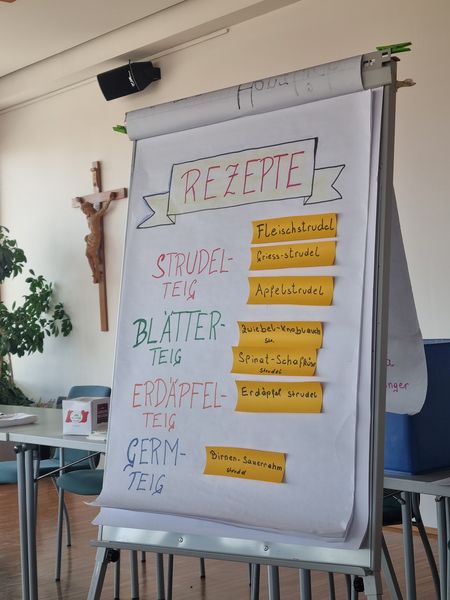 REZEPTE
Fleischstrudel
STRUDEL-
TEIG
Griess-strudel
Apfelstrudel
BLÄTTER-
TEIG
Zwiebel-Knoblauch
Str.
Spinat-Schafkäs
strudel
ERDÄPFEL-
TEIG
Erdäpfel strudel
GERM-
TEIG
Birnen-Sauerrahm
strudel